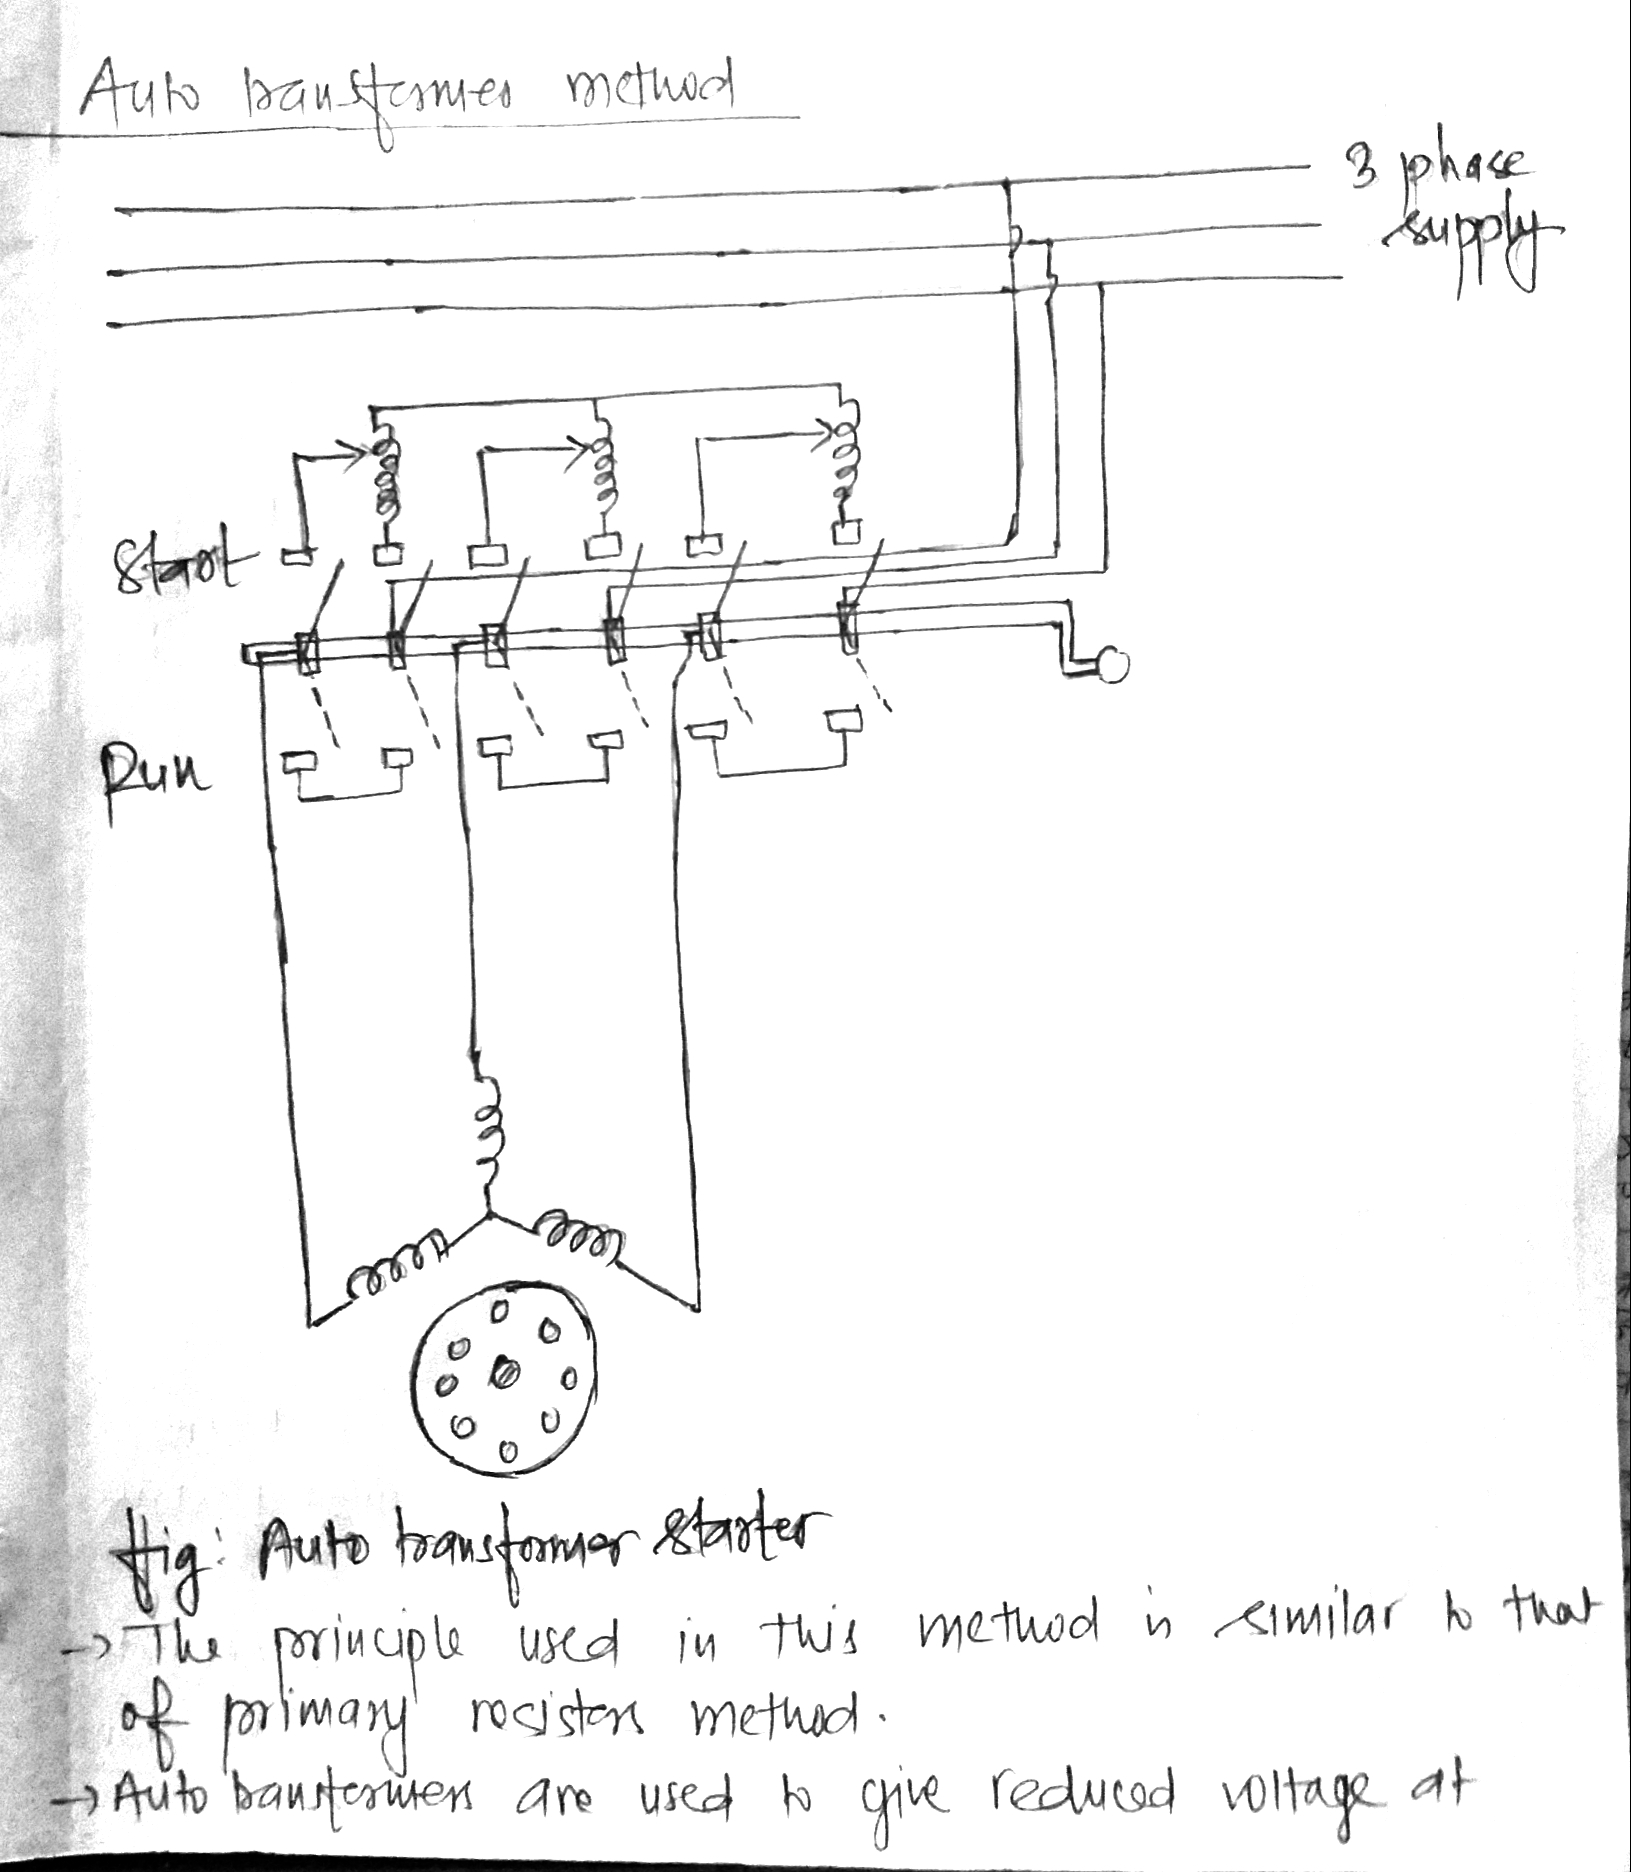 Auto transformer method
3 phase
supply
Start
Run
fig: Auto transformer starter
→ The principle used in this method is similar to that
of primary resistors method.
→ Auto transformers are used to give reduced voltage at